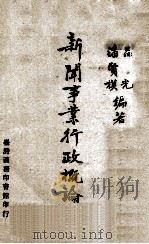 呂光
潘賢模 編著
新聞事業行政概論
臺灣商務印書館印行